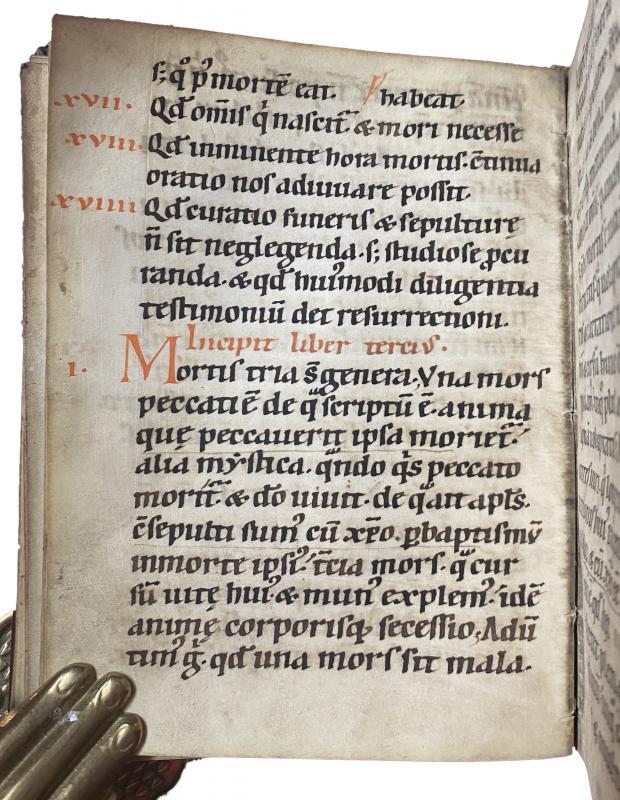 s; qͦ p᾽ mortē eat. habeat.
xvii. Qđ om̄is q̇ nascit᷑ & mori necesse
xviii. Qđ inminente hora mortis. c̄tinua
oratio nos adiuuare possit.
xviiii Qđ curatio funeris & sepulturę
n̄ sit neglegenda. s; studiose ꝓcu
randa. & qđ hui᾽modi diligentia
testimoniū det resurrectioni.
Incipit liber tercius.
I. Mortis tria s̄ genera. Vna mors
peccati ē de q̄ scriptū ē. anima
quę peccauerit ipsa moriet᷑.
alia mystica. q̄ndo q̇s peccato
morit᷑. & do uiuit. de q̄ ait apłs.
c̄sepulti sum᾽ cū xp̄o. ꝑ baptismū
in morte ipsi᾽. t̄cia mors. q̄ cur
sū uitę hui᾽ & mun᾽ explem᾽. idē
animę corporisq; secessio. Adū
tim᾽ g̊. qđ una mors sit mala.